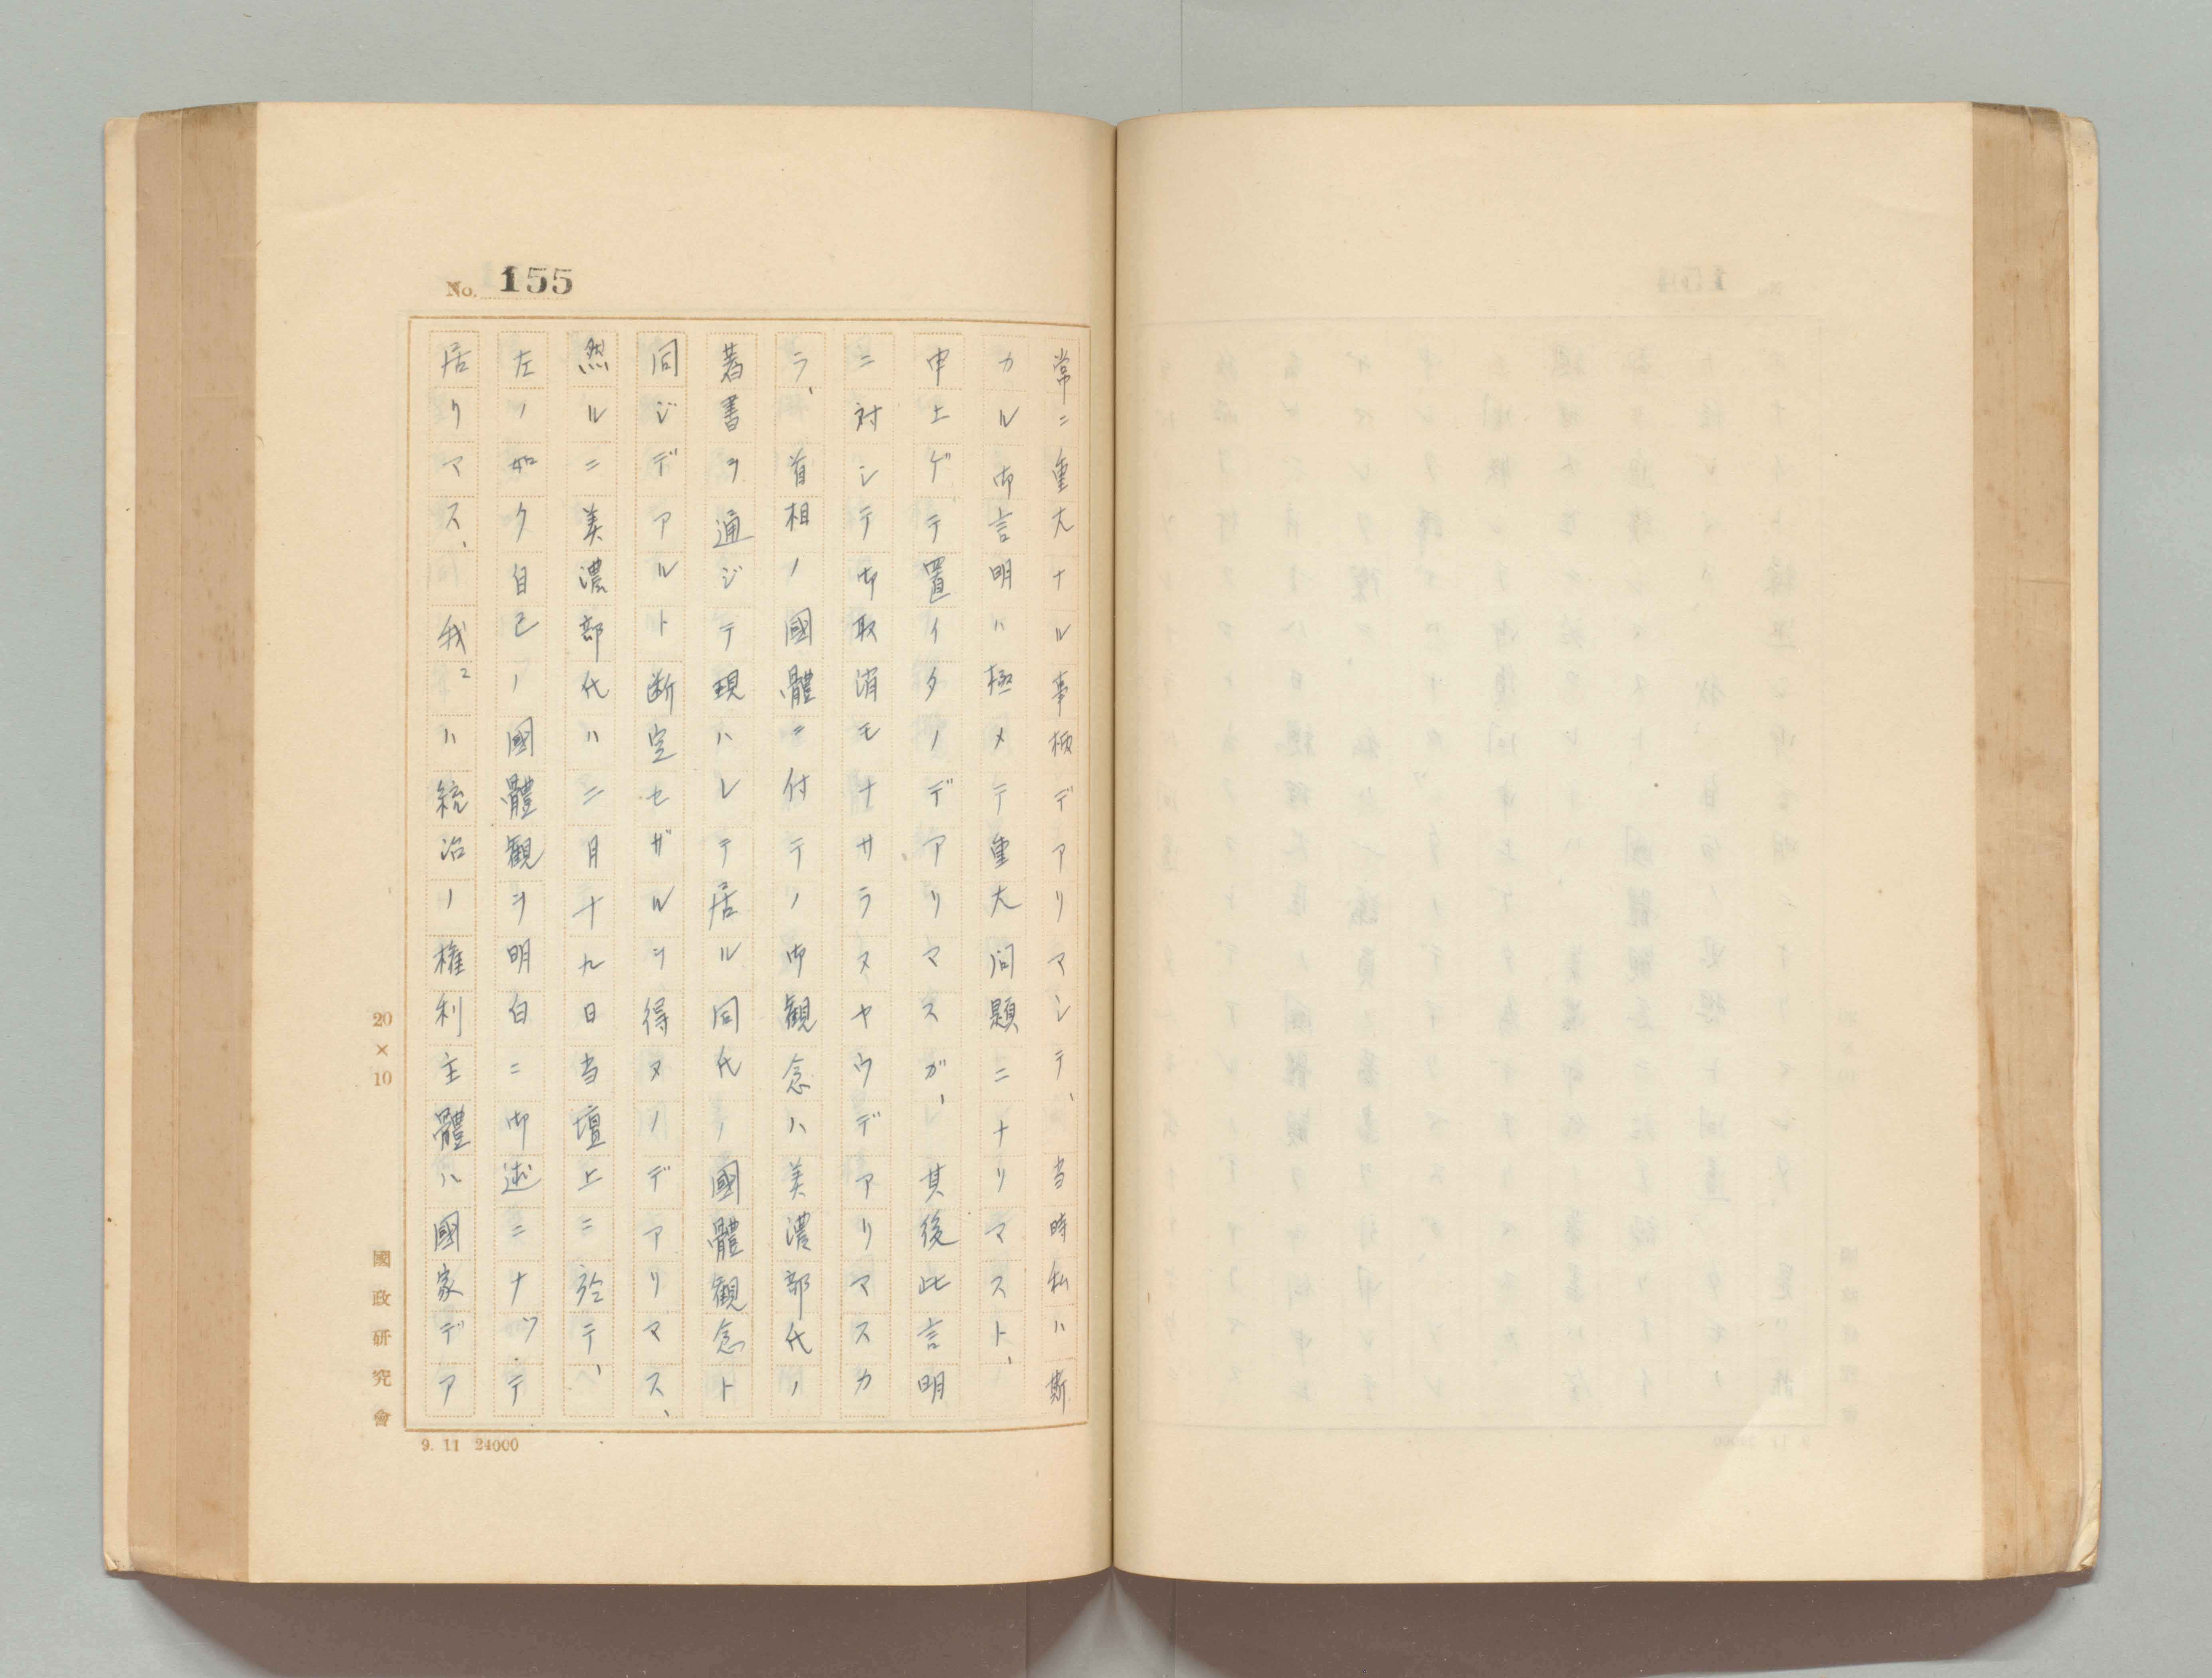 No. 155
常ニ重大ナル事柄デアリマシテ、当時私ハ斯
カル御言明ハ極メテ重大問題ニナリマスト、
申上ゲテ置イタノデアリマスガ、其後此言明
ニ対シテ御取消モナサラヌヤウデアリマスカ
ラ、首相ノ國體ニ付テノ御観念ハ美濃部代ノ
著書ヲ通ジテ現ハレテ居ル同代ノ國體観念ト
同ジデアルト断定セザルヲ得ヌノデアリマス、
然ルニ美濃部代ハ二月十九日当壇上ニ於テ、
左ノ如ク自己ノ國體観ヲ明白ニ御述ニナツテ
居リマス、我々ハ統治ノ権利主體ハ國家デア
20×10
國政研究會
9. 11 24000